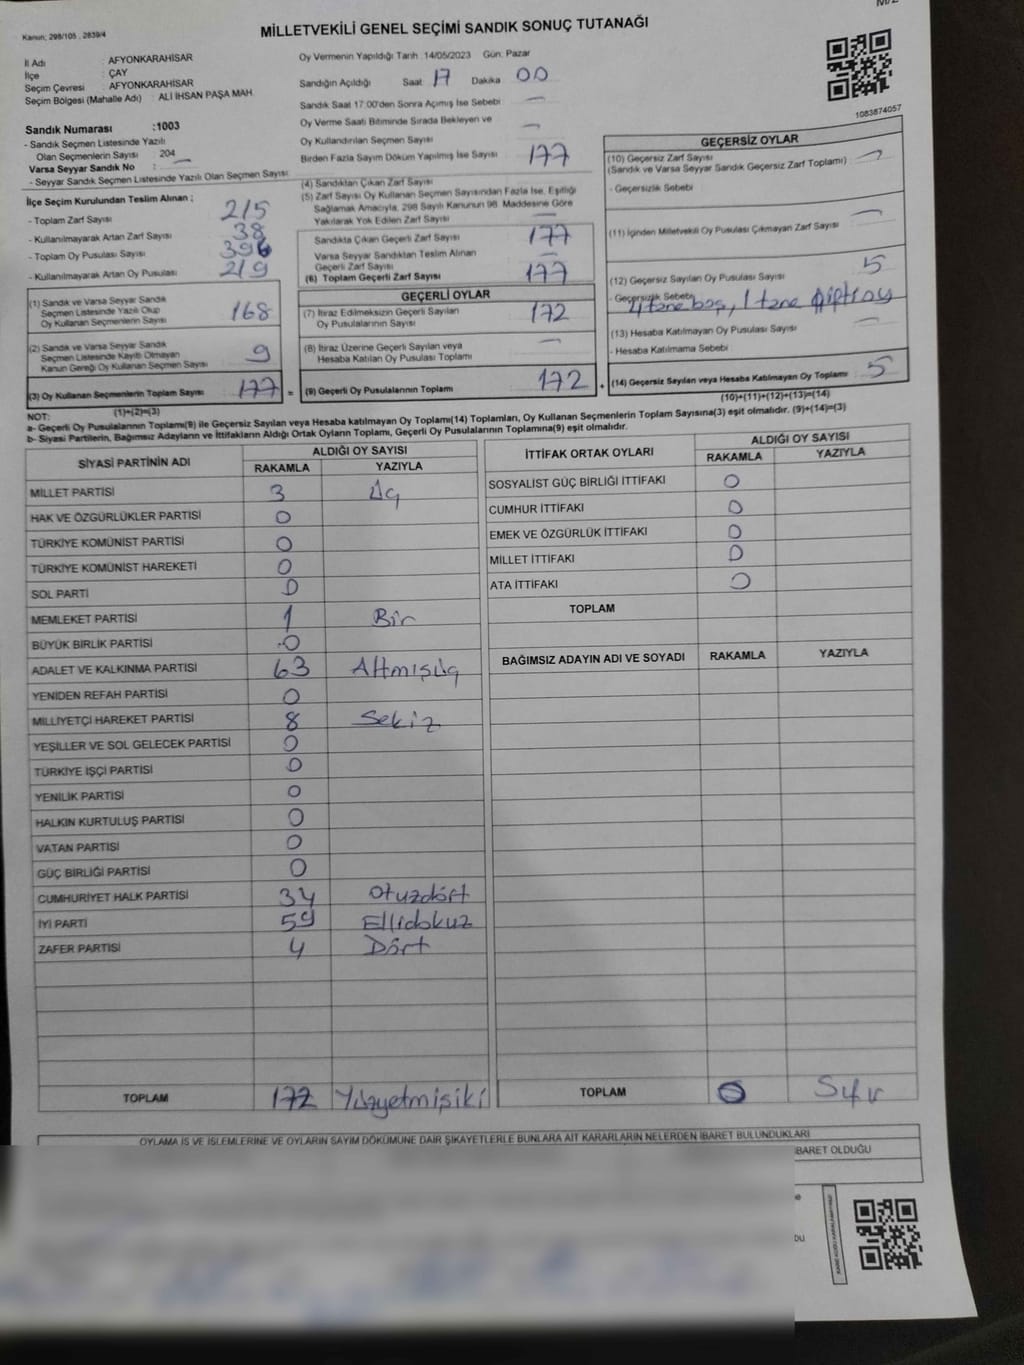 Kanun; 298/105 , 2839/4
MİLLETVEKİLİ GENEL SEÇİMİ SANDIK SONUÇ TUTANAĞI
İl Adı : AFYONKARAHİSAR
İlçe : ÇAY
Seçim Çevresi : AFYONKARAHİSAR
Seçim Bölgesi (Mahalle Adı) : ALİ İHSAN PAŞA MAH.
Sandık Numarası :1003
- Sandık Seçmen Listesinde Yazılı
Olan Seçmenlerin Sayısı : 204
Varsa Seyyar Sandık No : —
- Seyyar Sandık Seçmen Listesinde Yazılı Olan Seçmen Sayısı:
Oy Vermenin Yapıldığı Tarih :14/05/2023 Gün: Pazar
Sandığın Açıldığı Saat 17 Dakika 00
Sandık Saat 17:00'den Sonra Açımış İse Sebebi —
Oy Verme Saati Bitiminde Sırada Bekleyen ve
Oy Kullandırılan Seçmen Sayısı —
Birden Fazla Sayım Döküm Yapılmış İse Sayısı 177
1083874057
İlçe Seçim Kurulundan Teslim Alınan ;
- Toplam Zarf Sayısı 215
- Kullanılmayarak Artan Zarf Sayısı 38
- Toplam Oy Pusulası Sayısı 396
- Kullanılmayarak Artan Oy Pusulası 219
(1) Sandık ve Varsa Seyyar Sandık
Seçmen Listesinde Yazılı Olup
Oy Kullanan Seçmenlerin Sayısı 168
(2) Sandık ve Varsa Seyyar Sandık
Seçmen Listesinde Kayıtlı Olmayan
Kanun Gereği Oy Kullanan Seçmen Sayısı 9
(3) Oy Kullanan Seçmenlerin Toplam Sayısı 177 =
(1)+(2)=(3)
(4) Sandıktan Çıkan Zarf Sayısı
(5) Zarf Sayısı Oy Kullanan Seçmen Sayısından Fazla İse, Eşitliği
Sağlamak Amacıyla, 298 Sayılı Kanunun 98. Maddesine Göre
Yakılarak Yok Edilen Zarf Sayısı —
Sandıkta Çıkan Geçerli Zarf Sayısı 177
Varsa Seyyar Sandıktan Teslim Alınan
Geçerli Zarf Sayısı —
(6) Toplam Geçerli Zarf Sayısı 177
GEÇERLİ OYLAR
(7) İtiraz Edilmeksizin Geçerli Sayılan
Oy Pusulalarının Sayısı 172
(8) İtiraz Üzerine Geçerli Sayılan veya
Hesaba Katılan Oy Pusulası Toplamı —
(9) Geçerli Oy Pusulalarının Toplamı 172 +
GEÇERSİZ OYLAR
(10) Geçersiz Zarf Sayısı
(Sandık ve Varsa Seyyar Sandık Geçersiz Zarf Toplamı) —
- Geçersizlik Sebebi :
(11) İçinden Milletvekili Oy Pusulası Çıkmayan Zarf Sayısı —
(12) Geçersiz Sayılan Oy Pusulası Sayısı 5
- Geçersizlik Sebebi 4 tane boş, 1 tane oy
(13) Hesaba Katılmayan Oy Pusulası Sayısı —
- Hesaba Katılmama Sebebi :
(14) Geçersiz Sayılan veya Hesaba Katılmayan Oy Toplamı 5
(10)+(11)+(12)+(13)=(14)
NOT:
a- Geçerli Oy Pusulalarının Toplamı(9) ile Geçersiz Sayılan veya Hesaba katılmayan Oy Toplamı(14) Toplamları, Oy Kullanan Seçmenlerin Toplam Sayısına(3) eşit olmalıdır. (9)+(14)=(3)
b- Siyasi Partilerin, Bağımsız Adayların ve İttifakların Aldığı Ortak Oyların Toplamı, Geçerli Oy Pusulalarının Toplamına(9) eşit olmalıdır.
SİYASİ PARTİNİN ADI ALDIĞI OY SAYISI
RAKAMLA YAZIYLA
MİLLET PARTİSİ 3 Üç
HAK VE ÖZGÜRLÜKLER PARTİSİ 0
TÜRKİYE KOMÜNİST PARTİSİ 0
TÜRKİYE KOMÜNİST HAREKETİ 0
SOL PARTİ 0
MEMLEKET PARTİSİ 1 Bir
BÜYÜK BİRLİK PARTİSİ 0
ADALET VE KALKINMA PARTİSİ 63 Altmışüç
YENİDEN REFAH PARTİSİ 0
MİLLİYETÇİ HAREKET PARTİSİ 8 Sekiz
YEŞİLLER VE SOL GELECEK PARTİSİ 0
TÜRKİYE İŞÇİ PARTİSİ 0
YENİLİK PARTİSİ 0
HALKIN KURTULUŞ PARTİSİ 0
VATAN PARTİSİ 0
GÜÇ BİRLİĞİ PARTİSİ 0
CUMHURİYET HALK PARTİSİ 34 Otuzdört
İYİ PARTİ 59 Ellidokuz
ZAFER PARTİSİ 4 Dört
TOPLAM 172 Yüzyetmişiki
İTTİFAK ORTAK OYLARI ALDIĞI OY SAYISI
RAKAMLA YAZIYLA
SOSYALİST GÜÇ BİRLİĞİ İTTİFAKI 0
CUMHUR İTTİFAKI 0
EMEK VE ÖZGÜRLÜK İTTİFAKI 0
MİLLET İTTİFAKI 0
ATA İTTİFAKI 0
TOPLAM
BAĞIMSIZ ADAYIN ADI VE SOYADI RAKAMLA YAZIYLA
TOPLAM 0 Sıfır
OYLAMA İŞ VE İŞLEMLERİNE VE OYLARIN SAYIM DÖKÜMÜNE DAİR ŞİKAYETLERLE BUNLARA AİT KARARLARIN NELERDEN İBARET BULUNDUKLARI
İBARET OLDUĞU